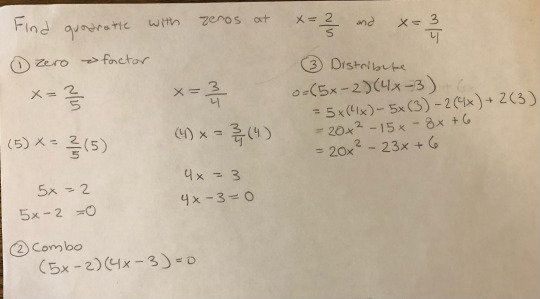 Find quadratic with zeros at x = 2/5 and x = 3/4
① zero → factor
x = 2/5
x = 3/4
(5) x = 2/5 (5)
(4) x = 3/4 (4)
5x = 2
4x = 3
5x - 2 = 0
4x - 3 = 0
② Combo
(5x - 2)(4x - 3) = 0
③ Distribute
0 = (5x - 2)(4x - 3)
= 5x(4x) - 5x(3) - 2(4x) + 2(3)
= 20x² - 15x - 8x + 6
= 20x² - 23x + 6